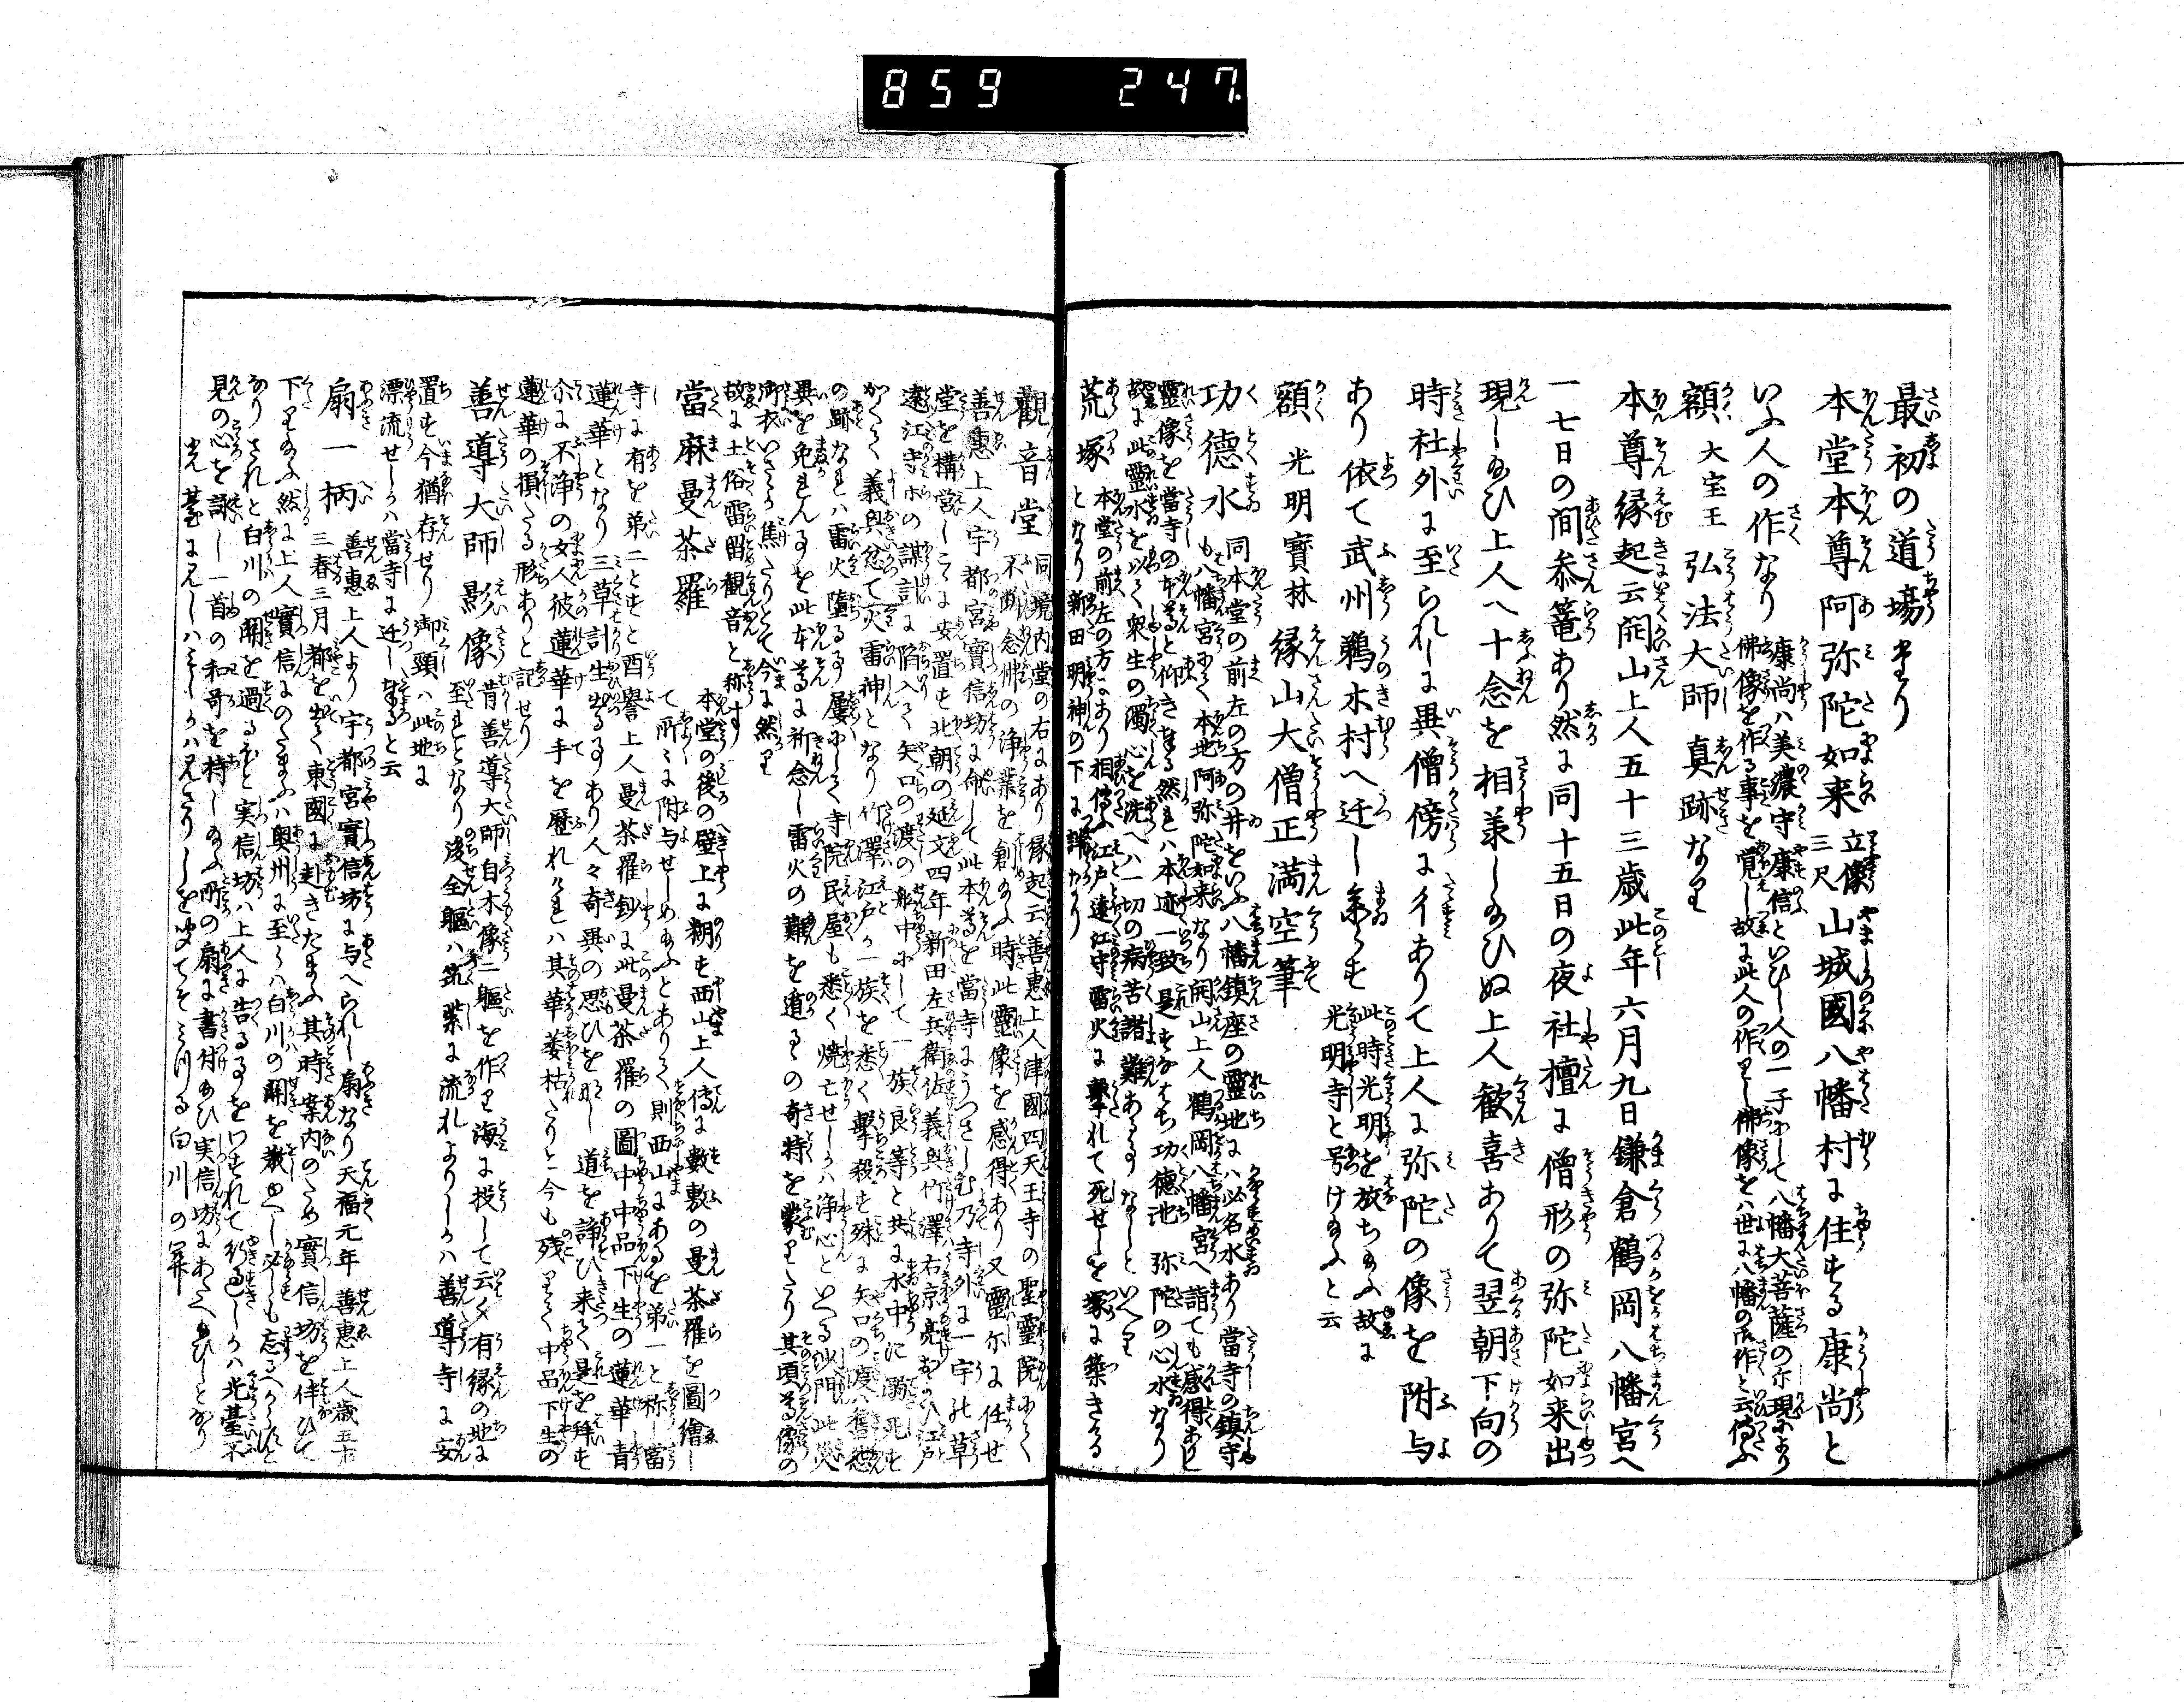 859 247
最初の道場なり
本堂本尊阿弥陀如来 立像三尺 山城國八幡村に住する康尚と
いふ人の作なり 康尚ハ美濃守康信といひし人の一子にして八幡大菩薩の示現により
佛像を作る事を覚し故に此人の作りし佛像をハ世に八幡の御作と云傳ふ
額 大宝王 弘法大師真跡なり
本尊縁起云開山上人五十三歳此年六月九日鎌倉鶴岡八幡宮へ
一七日の間参篭あり然に同十五日の夜社檀に僧形の弥陀如来出
現し給ひ上人へ十念を相羕し給ひぬ上人歓喜ありて翌朝下向の
時社外に至られしに異僧傍に彳ありて上人に弥陀の像を附与
あり依て武州鵜木村へ迁し奉らす 此時光明を放ち給ふ故に
光明寺と号け給ふと云
額 光明寶林 縁山大僧正満空筆
功德水 同本堂の前左の方の井をいふ八幡鎮座の靈地にハ必名水あり當寺の鎮守
も八幡宮にて本地阿弥陀如来なり開山上人鶴岡八幡宮へ詣ても感得ありし
靈像を當寺の本尊と仰き奉る然れハ本迹一致是すなはち功德池弥陀の心水なり
故に此靈水を以て衆生の濁心を洗へハ一切の病苦諸難あるヿなしといへり
荒塚 本堂の前左の方にあり相傳ふ江戸遠江守雷火に撃れて死せしを塚に築きたる
となり新田明神の下に詳かなり
觀音堂 同境内堂の右にあり縁起云善惠上人津國四天王寺の聖靈院にて
不断念佛の浄業を創給ふ時此靈像を感得あり又靈尓に任せ
善惠上人宇都宮實信坊に命して此本尊を當寺にうつさしむ乃寺外に一宇の草
堂を構営しこゝに安置す北朝の延文四年新田左兵衛佐義興竹澤右京亮および江戸
遠江守等の謀計に陥入て矢口の渡の舩中にして一族良等と共に水中に溺死す
かくて義興忽て火雷神となり竹澤江戸か一族を悉く撃殺す殊に矢口の渡ハ舊怨
の跡なれハ雷火墮るヿ屡にして寺院民屋も悉く焼亡せしかハ浄心といへる沙門此災
異を免れんヿを此本尊に祈念し雷火の難を遁るゝの奇特を蒙りたり其頃尊像の
御衣いさゝか焦たりとて今に然り
故に土俗雷留観音と称す
當麻曼荼羅 本堂の後の壁上に糊す西山上人傳に數敷の曼荼羅を圖繪し
て所々に附与せしめ給ふとありて則西山にあるを弟一と称し當
寺に有を弟二とすと酉譽上人曼荼羅鈔に此曼荼羅の圖中中品下生の蓮華青
蓮華となり三草計生出るヿあり人々奇異の思ひをなし道を諍ひ来て是を拜す
尒に不浄の女人彼蓮華に手を歴れけれハ其華萎枯たりと今も残りて中品下生の
蓮華の損たる形ありと記せり
善導大師影像 昔善導大師自木像二軀を作り海に投して云く有縁の地に
至れとなり後全軀ハ筑紫に流れよりしかハ善導寺に安
置す今猶存せり御頸ハ此地に
漂流せしかハ當寺に迁し奉ると云
扇一柄 善惠上人より宇都宮實信坊に与へられし扇なり天福元年善惠上人歳五十
三春三月都を出て東國に赴きたまふ其時案内のため實信坊を伴ひて
下り給ふ然に上人實信にのたまふハ奥州に至らハ白川の關を教ゆへし必しも忘るへからすと
ありされと白川の關を過るほと実信坊ハ上人に告るヿをわすれて行過しかハ光臺不
見の心を詠し一首の和哥を持し給ふ所の扇に書付給ひ実信坊にあたへ給ひしとなり
光臺に見しハ見しかハ見さりしを聞てそ見つる白川の関